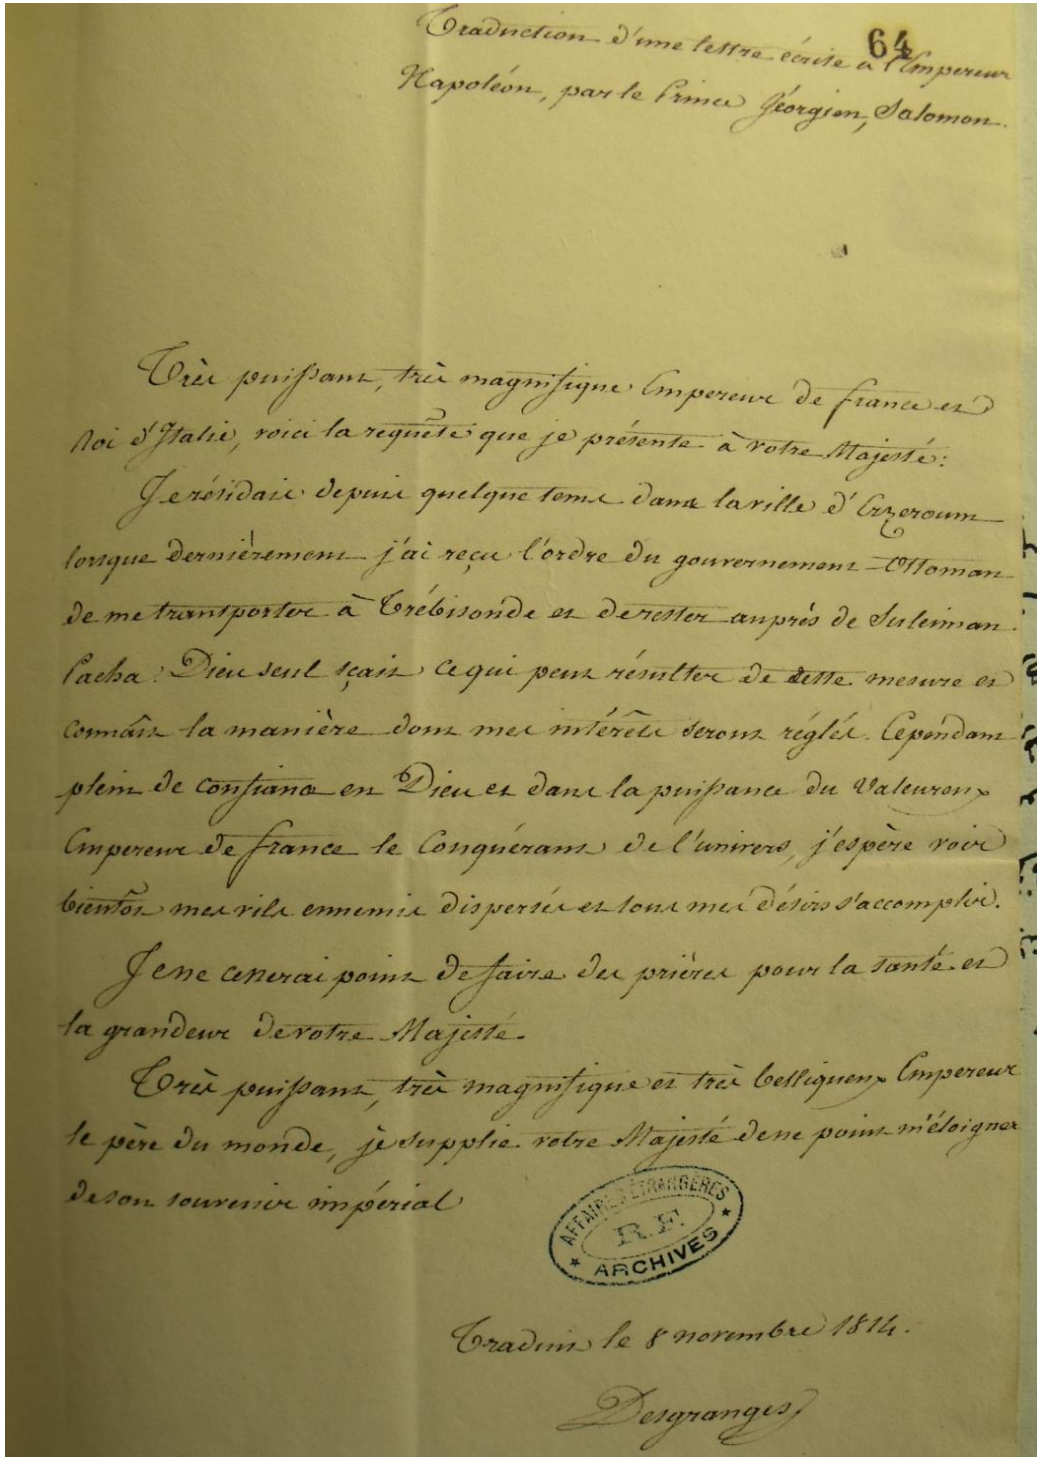 64
Traduction d'une lettre écrite à l'Empereur
Napoléon, par le Prince Géorgien, Salomon.
Très puissant, très magnifique Empereur de france et
Roi d'Italie, voici la requête que je présente à votre Majesté:
Je résidais depuis quelque tems dans la ville d'Erzeroum
lorsque dernièrement j'ai reçu l'ordre du gouvernement Ottoman
de me transporter à Trébisonde et de rester auprès de Suleiman
Pacha. Dieu seul sçait ce qui peut résulter de cette mesure et
connâit la manière dont mes intérêts seront réglés. Cependant
plein de confiance en Dieu et dans la puissance du Valeureux
Empereur de france le Conquérant de l'univers, j'espère voir
bientôt mes vils ennemis dispersés et tous mes désirs s'accomplir.
Je ne cesserai point de faire des prières pour la santé et
la grandeur de votre Majesté.
Très puissant, très magnifique et très belliqueux Empereur
le père du monde, je supplie votre Majesté de ne point m'éloigner
de son souvenir impérial
AFFAIRES ÉTRANGÈRES
R.F.
* ARCHIVES *
Traduit le 8 novembre 1814.
Desgranges